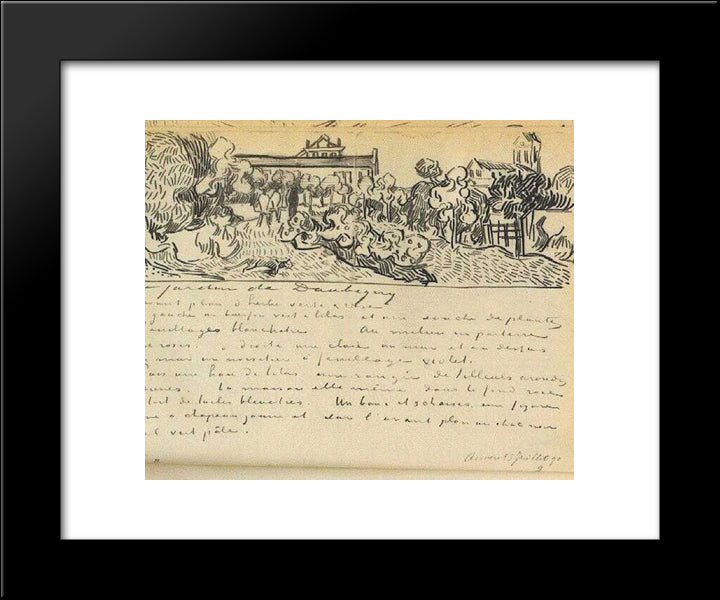 jardin de Daubigny
avant plan d'herbe verte & rose
gauche un buisson vert & lilas et une souche de plantes
feuillages blanchatres Au milieu un parterre
de roses. à droite une claie un mur et au dessus
mur un noisetier à feuillage violet.
Puis une haie de lilas une rangée de tilleuls arrondis
jaunes. La maison elle même dans le fond rose
toit de tuiles bleuatres. Un banc et 3 chaises, une figure
à chapeau jaune et sur l'avant plan un chat noir
vert pâle.
Auvers Juillet 90